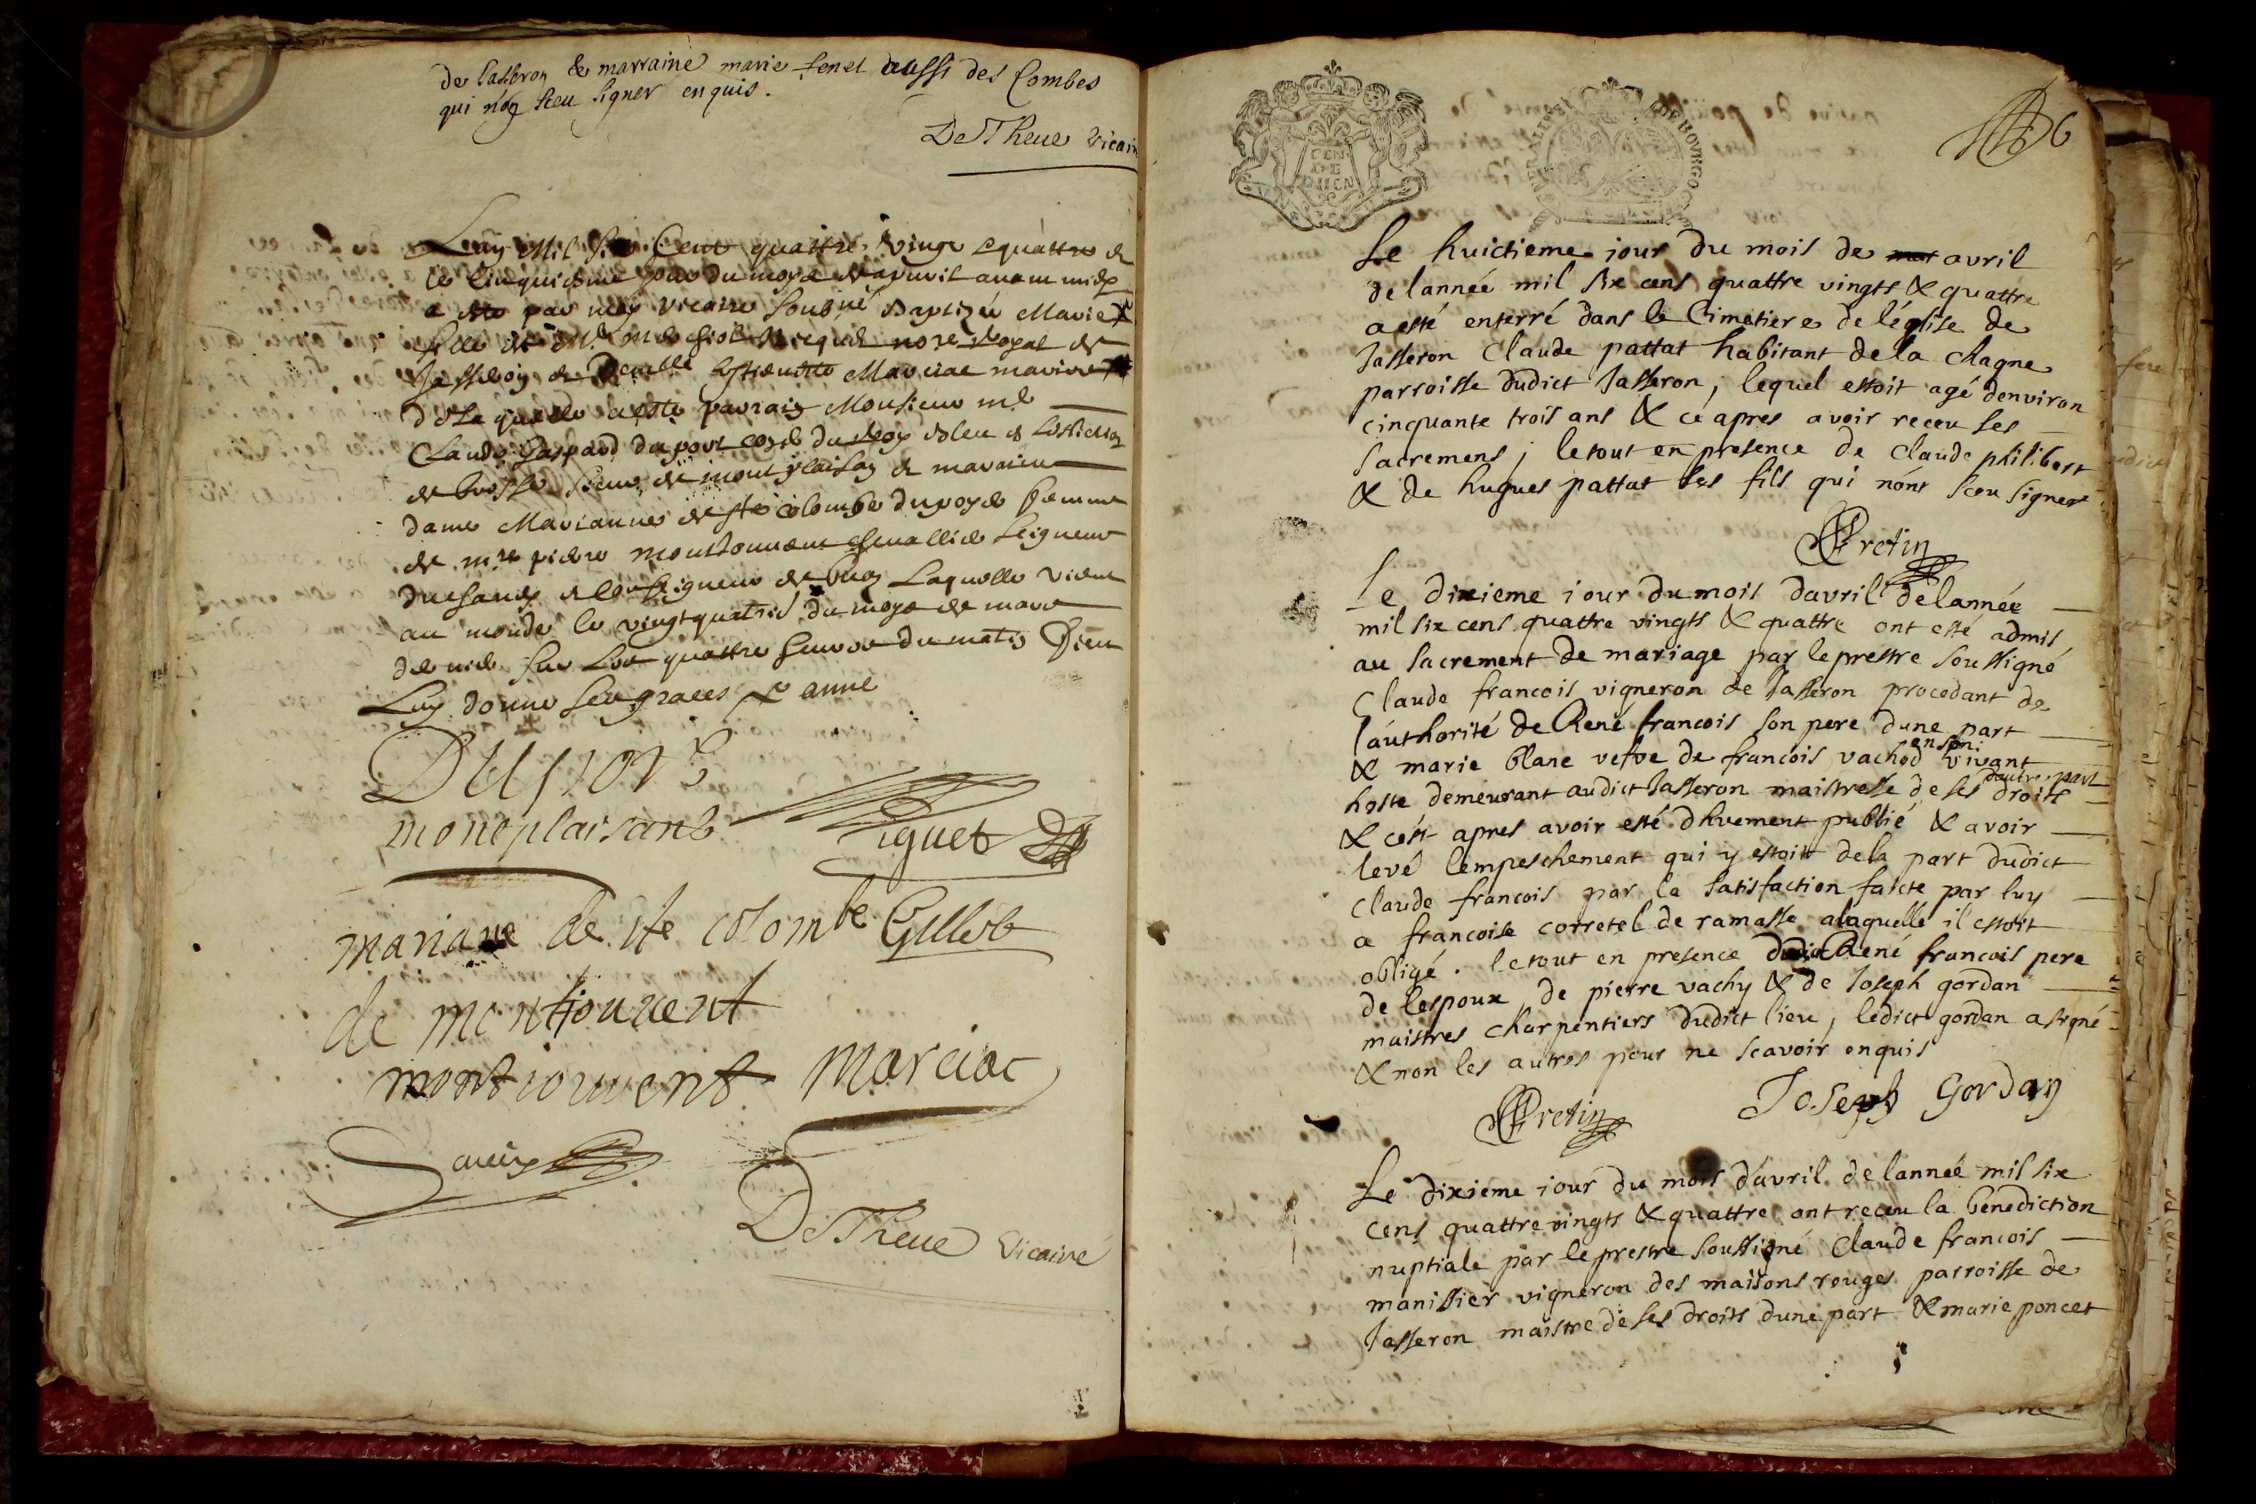 de Jasseron & marraine marie fenet aussi des Combes
qui n'on sceu signer enquis.
De Theue Vicaire
Lan Mil six Cent quattre vingt equattre &
le Cinquiesme jour du moys apvril avam midy
a este par moy vicaire soubné Baptizée Marie
fille de royal de
Jasseron & Marciac mariee
de laquelle a este parrain Monsieur m.e
Claude Gaspard duport du Roy
de sieur de montplaisan & maraine
dame Marianne de ste colombe femme
de m.re piere montjouvent chevallier seigneur
seigneur de laquelle vient
au monde le vingtquatrie.e du moys de mars
dernier sur les quattre heures du matin Dieu
Luy donne ses graces & anne
Duport
monoplaisant
Piguet
mariane de ste colombe Gillet
de montjouuent
montjouuent Marciac
De Theue Vicaire
CEN
6
Le huictieme jour du mois de avril
de lannée mil six cens quattre vingts & quattre
a esté enterré dans le Cimetiere de léglise de
Jasseron Claude pattat habitant de la chagne
parroisse dudict Jasseron, lequel estoit agé denviron
cinquante trois ans & ce apres avoir receu ses
sacremens, le tout en presence de Claude philibert
& de hugues pattat ses fils qui nónt sceu signer
Pretin
Le dixieme jour du mois davril de lannée
mil six cens quattre vingts & quattre ont esté admis
au sacrement de mariage par le prestre soussigné
Claude francois vigneron de Jasseron procedant de
l'authorité de René francois son pere dune part
& marie blanc vefve de francois vachod en son vivant
hoste demeurant audict Jasseron maistresse de ses droits dautre part
& cést apres avoir esté dhuement publié & avoir
levé lempeschement qui y estoit de la part dudict
Claude francois par la satisfaction faicte par luy
a francoise corretel de ramasse a laquelle il estoit
obligé. le tout en presence dudict René francois pere
de lespoux, de pierre vachy & de Joseph gordan
maistres charpentiers dudict lieu, ledict gordan a signé
& non les autres pour ne scavoir enquis
Pretin Joseph Gordan
Le dixieme jour du mois d'avril de lannée mil six
cens quattre vingts & quattre ont receu la bénediction
nuptiale par le prestre soussigné Claude francois
manissier vigneron des maisons rouges parroisse de
Jasseron maistre de ses droits dune part & marie poncet